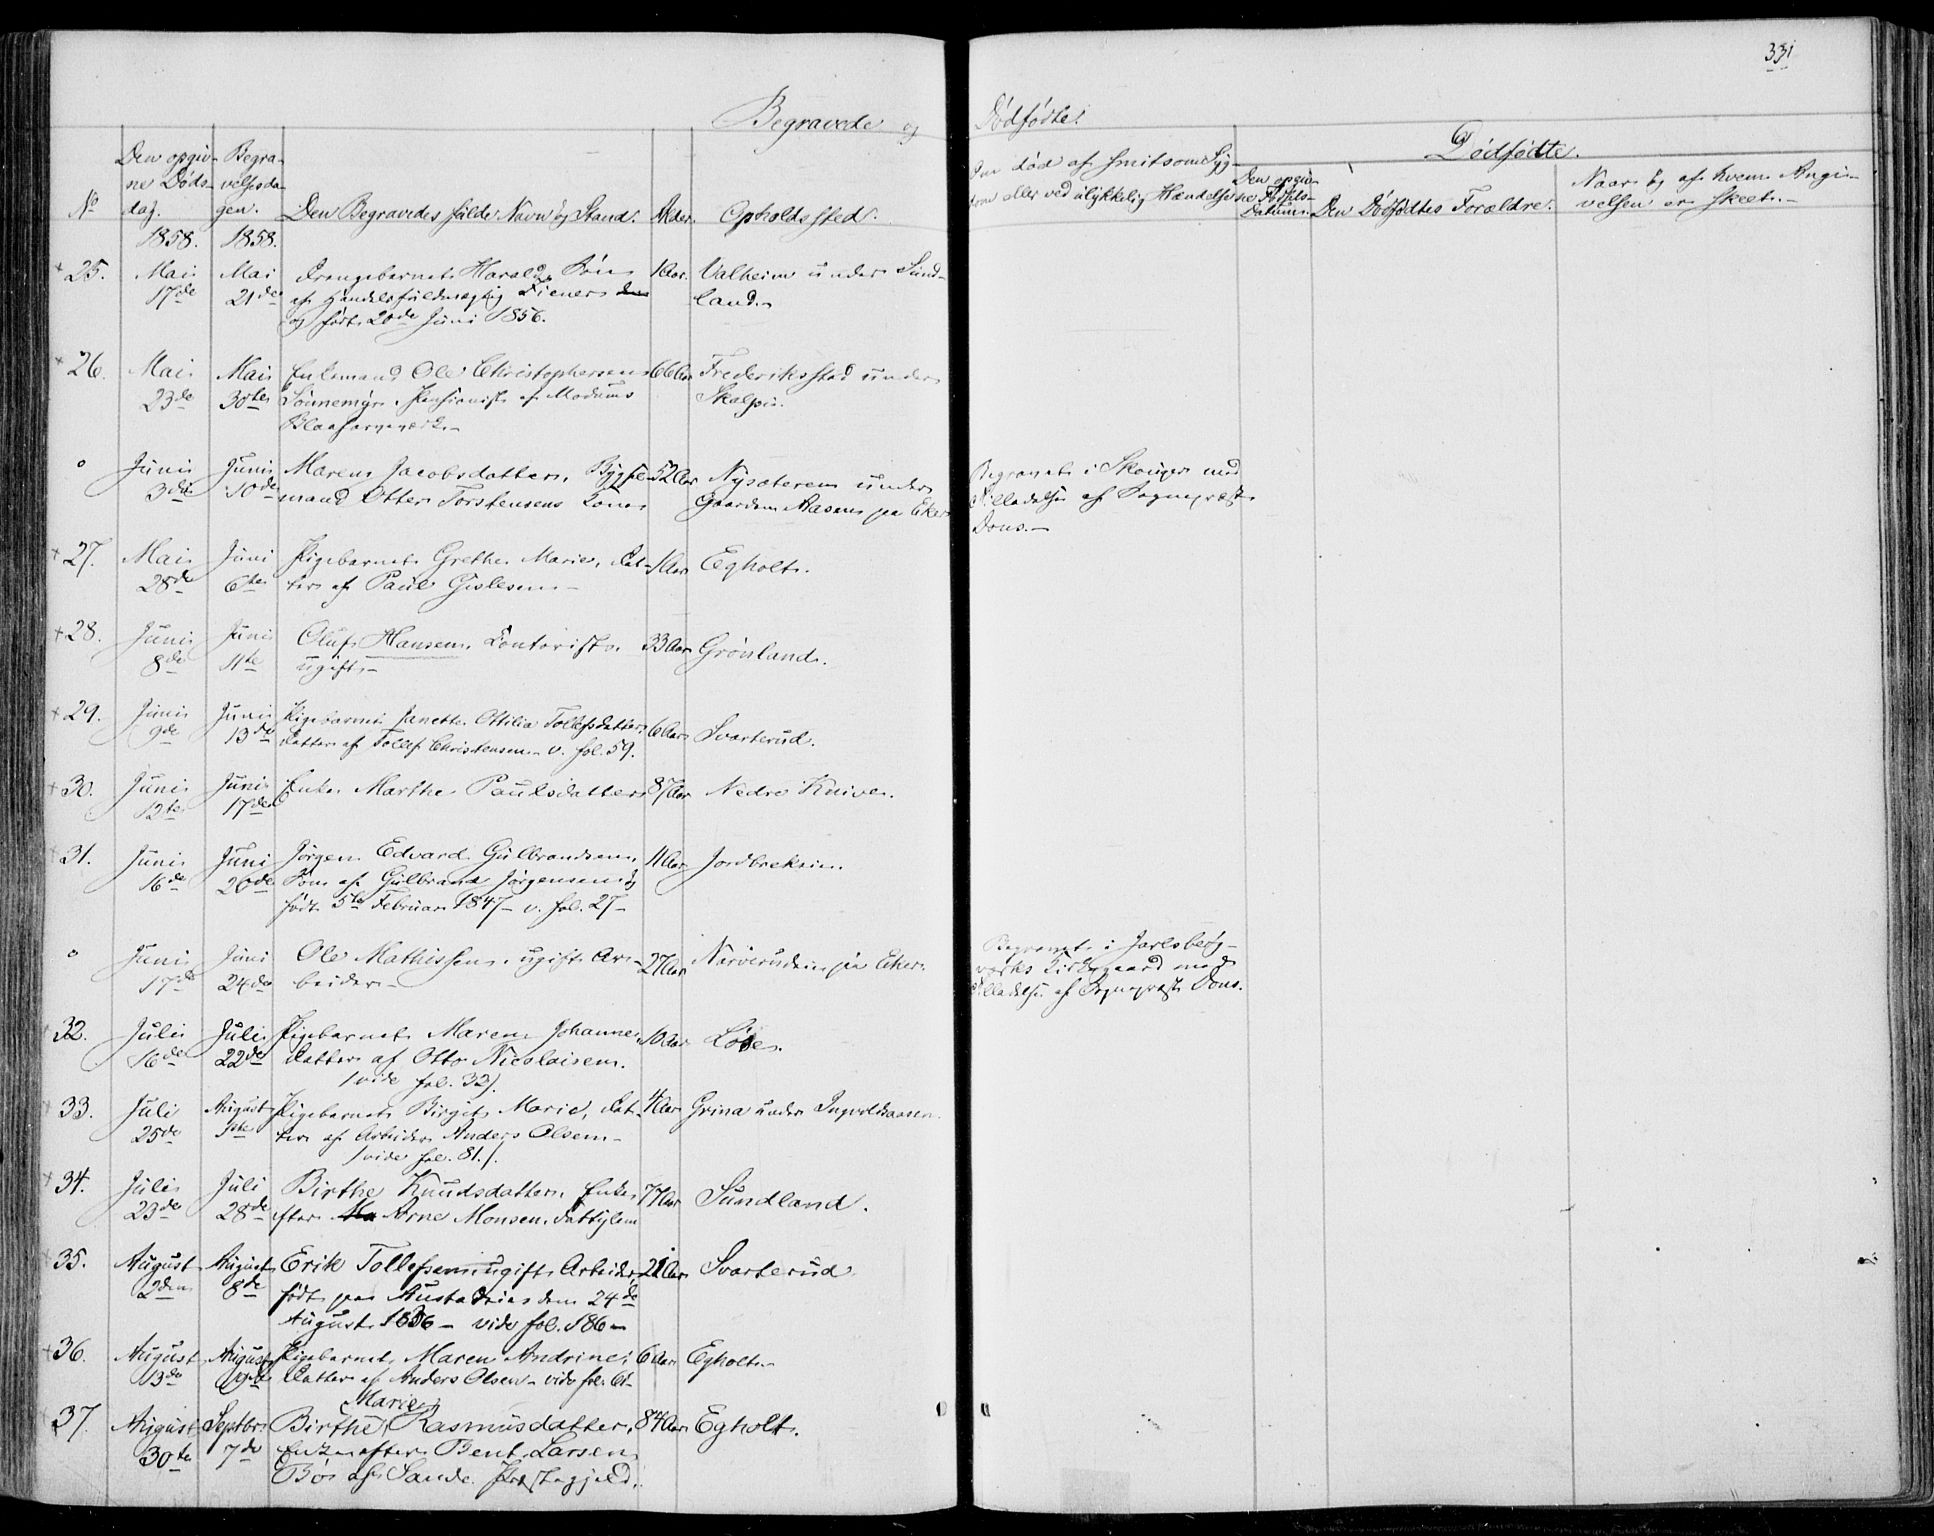 331
Begravede og Dødfødte.
No
Den opgivne Dødsdag.
Begravelsesdagen.
Den Begravedes fulde Navn og Stand.
Alder.
Opholdssted.
Om død af smitsom Syg-
dom eller ved ulykkelig Hændelse
Dødfødte.
Den opgivne Fødsels Datum.
Den Dødfødtes Forældre.
Naar og af hvem Angi-
velsen er skeet.
1858. 1858.
25. Mai Mai Drengebarnet Harald, Søn 1 Aar. Valheim under Sund-
17de 21de af Handelsfuldmægtig Diener land.
og født 20de Juni 1856.
26. Mai Mai Enkemand Ole Christophersen 66 Aar Frederiksstad under
23de 30te Sønnemyr, Pensionist af Modums Skalpi.
Blaafarveværk.
Juni Juni Maren Jacobsdatter, Bygsel- 52 Aar Nysæteren under
3die 10de mand Otter Torstensens Kone Gaarden Aasen paa Eker
Begravet i Skouger med
Tilladelse af Sognepræst
Dons.
27. Mai Juni Pigebarnet Grethe Marie, Dat- 1 Aar Egholt.
28de 6te ter af Paul Gislesen
28. Juni Juni Oluf Hansen, Contorist 33 Aar Grønland.
8de 11te ugift
29. Juni Juni Pigebarnet Janette Ottilia Tollefsdatter 6 Aar Svarterud.
9de 13de Datter af Tollef Christensen v. fol. 59.
30. Juni Juni Enke Marthe Paulsdatter 87 Aar Nedre Knive.
12te 17de
31. Juni Juni Jørgen Edvard Gulbrandsen, 11 Aar Jordbrekken.
16de 20de Søn af Gulbrand Jørgensen og
født 5te Februar 1847 v. fol. 27
Juni Juni Ole Mathissen, ugift Ar- 27 Aar Narverud paa Eker
17de 24de beider
Begravet i Jarlsberg-
værks Kirkegaard med
Tilladelse af Sognepræst Dons.
32. Juli Juli Pigebarnet Maren Johanne, 10 Aar
16de 22de Datter af Otto Nicolaisen.
/vide fol. 32/.
33. Juli August Pigebarnet Birgit Marie, Dat- 4 Aar Grina under Ingvoldsaasen
25de 1ste ter af Arbeider Anders Olsen
/vide fol. 81./
34. Juli Juli Birthe Knudsdatter, Enke 77 Aar Sundland.
23de 28de efter Arne Monsen
35. August August Erik Tollefsen ugift Arbeider 21 Aar Svarterud
2den 8de født paa den 24de
August 1836 vide fol. 186
36. August August Pigebarnet Maren Andrine, 6 Aar Egholt
13de Datter af Anders Olsen vide fol. 61
Marie
37. August Septbr Birthe Rasmusdatter, 84 Aar Egholt.
30te 7de Enke efter Bent Larsen
Bø af Sande Præstegjæld.